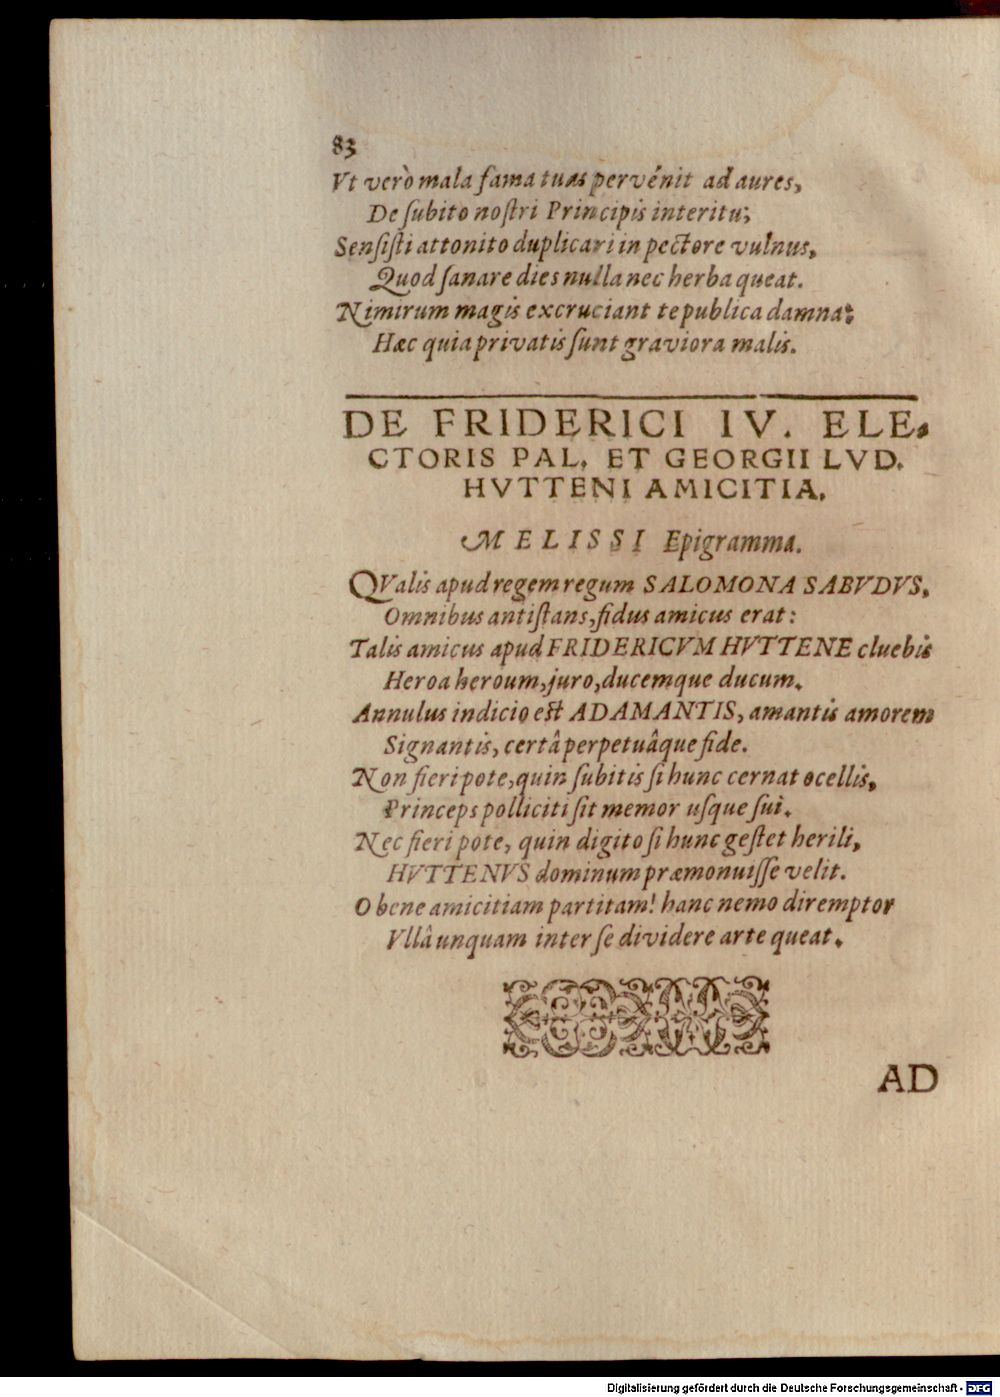 83
Vt verò mala fama tuas pervénit ad aures,
De ſubito noſtri Principis interitu;
Senſiſti attonito duplicari in pectore vulnus,
Quod ſanare dies nulla nec herba queat.
Nimirum magis excruciant te publica damna;
Hæc quia privatis ſunt graviora malis.
DE FRIDERICI IV. ELE-
CTORIS PAL. ET GEORGII LVD.
HVTTENI AMICITIA.
MELISSI Epigramma.
QValis apud regem regum SALOMONA SABVDVS,
Omnibus antiſtans, fidus amicus erat:
Talis amicus apud FRIDERICVM HVTTENE cluebis
Heroa heroum, juro, ducemque ducum.
Annulus indicio eſt ADAMANTIS, amantis amorem
Signantis, certâ perpetuâque fide.
Non fieri pote, quin ſubitis ſi hunc cernat ocellis,
Princeps polliciti ſit memor uſque ſui.
Nec fieri pote, quin digito ſi hunc geſtet herili,
HVTTENVS dominum præmonuiſſe velit.
O bene amicitiam partitam! hanc nemo diremptor
Vllâ unquam inter ſe dividere arte queat.
AD
Digitalisierung gefördert durch die Deutsche Forschungsgemeinschaft - DFG